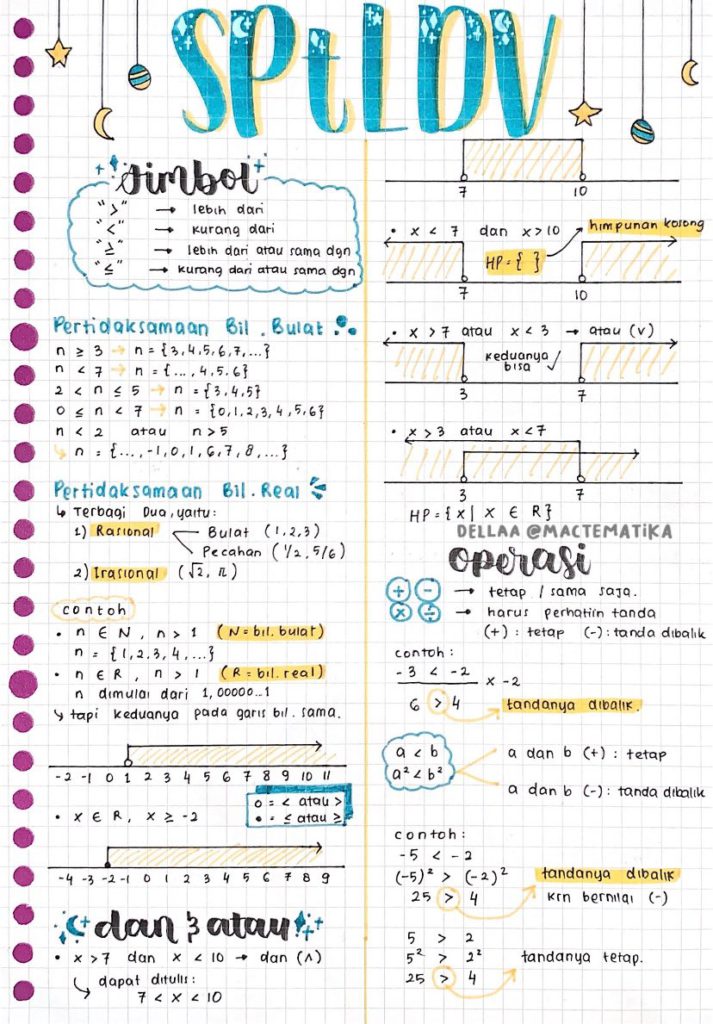 SPtLDV
Simbol
">" → lebih dari
"<" → kurang dari
"≥" → lebih dari atau sama dgn
"≤" → kurang dari atau sama dgn
Pertidaksamaan Bil. Bulat
n ≥ 3 → n = {3,4,5,6,7,...}
n < 7 → n = {..., 4,5,6}
2 < n ≤ 5 → n = {3,4,5}
0 ≤ n < 7 → n = {0,1,2,3,4,5,6}
n < 2 atau n > 5
↳ n = {..., -1,0,1,6,7,8,...}
Pertidaksamaan Bil. Real
↳ Terbagi Dua, yaitu:
1) Rasional
Bulat (1,2,3)
Pecahan (1/2, 5/6)
2) Irasional (√2, π)
contoh
• n ∈ N, n > 1 (N = bil. bulat)
n = {1,2,3,4,...}
• n ∈ R, n > 1 (R = bil. real)
n dimulai dari 1,00000...1
↳ tapi keduanya pada garis bil. sama.
-2 -1 0 1 2 3 4 5 6 7 8 9 10 11
o = < atau >
• = ≤ atau ≥
• x ∈ R, x ≥ -2
-4 -3 -2 -1 0 1 2 3 4 5 6 7 8 9
dan & atau
• x > 7 dan x < 10 → dan (∧)
↳ dapat ditulis:
7 < x < 10
7 10
• x < 7 dan x > 10
himpunan kosong
HP = { }
7 10
• x > 7 atau x < 3 → atau (∨)
keduanya
bisa ✓
3 7
• x > 3 atau x < 7
3 7
HP = {x | x ∈ R}
DELLAA @MACTEMATIKA
operasi
+ - → tetap / sama saja.
× ÷ → harus perhatiin tanda
(+) : tetap (-) : tanda dibalik
contoh:
-3 < -2
× -2
6 > 4
tandanya dibalik.
a < b
a² < b²
a dan b (+) : tetap
a dan b (-) : tanda dibalik
contoh:
-5 < -2
(-5)² > (-2)²
25 > 4
tandanya dibalik
krn bernilai (-)
5 > 2
5² > 2²
25 > 4
tandanya tetap.